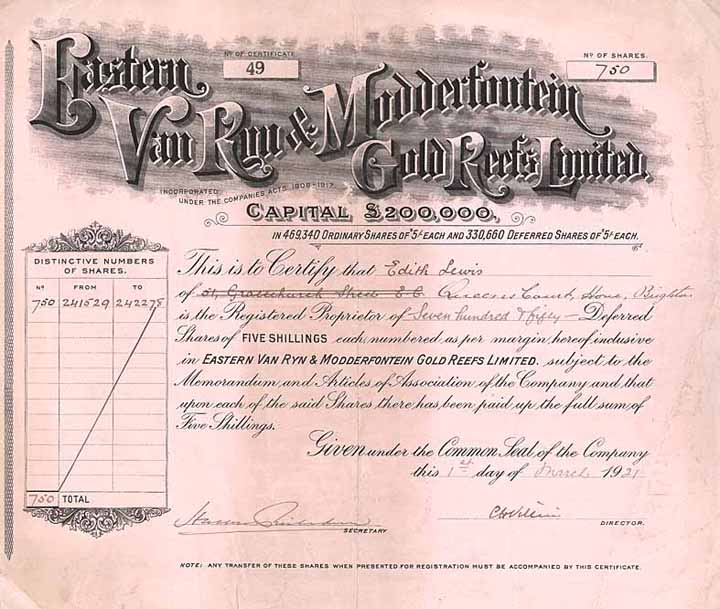 Nº OF CERTIFICATE
49
Nº OF SHARES.
750
Eastern
Van Ryn & Modderfontein
Gold Reefs Limited.
INCORPORATED
UNDER THE COMPANIES ACTS, 1908-1917.
CAPITAL $200,000,
IN 469,340 ORDINARY SHARES OF 5/- EACH AND 330,660 DEFERRED SHARES OF 5/- EACH.
DISTINCTIVE NUMBERS
OF SHARES.
Nº FROM TO
750 241529 242278
750 TOTAL
This is to Certify that Edith Lewis
of 51, Gracechurch Street E.C. Queens Court, Hove, Brighton
is the Registered Proprietor of Seven hundred & fifty — Deferred
Shares of FIVE SHILLINGS each, numbered, as per margin hereof, inclusive
in EASTERN VAN RYN & MODDERFONTEIN GOLD REEFS LIMITED, subject to the
Memorandum and Articles of Association of the Company and that
upon each of the said Shares there has been paid up the full sum of
Five Shillings.
Given under the Common Seal of the Company
this 1st day of March 1921
SECRETARY
DIRECTOR.
NOTE: ANY TRANSFER OF THESE SHARES WHEN PRESENTED FOR REGISTRATION MUST BE ACCOMPANIED BY THIS CERTIFICATE.